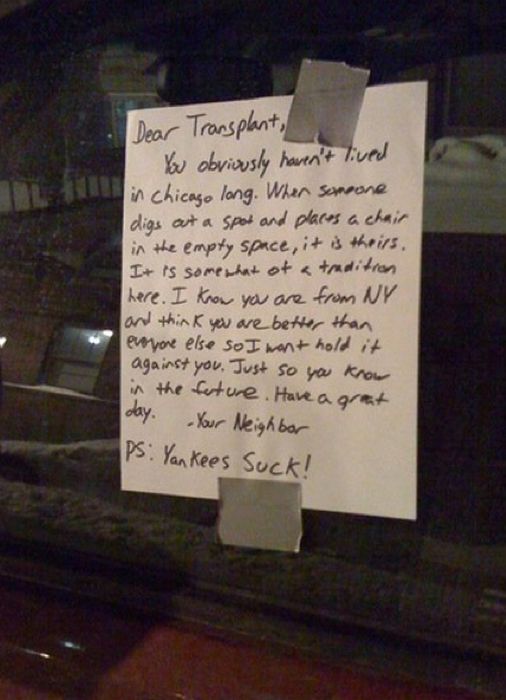 Dear Transplant,
You obviously haven't lived
in chicago long. When someone
digs out a spot and places a chair
in the empty space, it is theirs.
It is somewhat of a tradition
here. I know you are from NY
and think you are better than
everyone else so I wont hold it
against you. Just so you know
in the future. Have a great
day.
-Your Neighbor
PS: Yankees Suck!